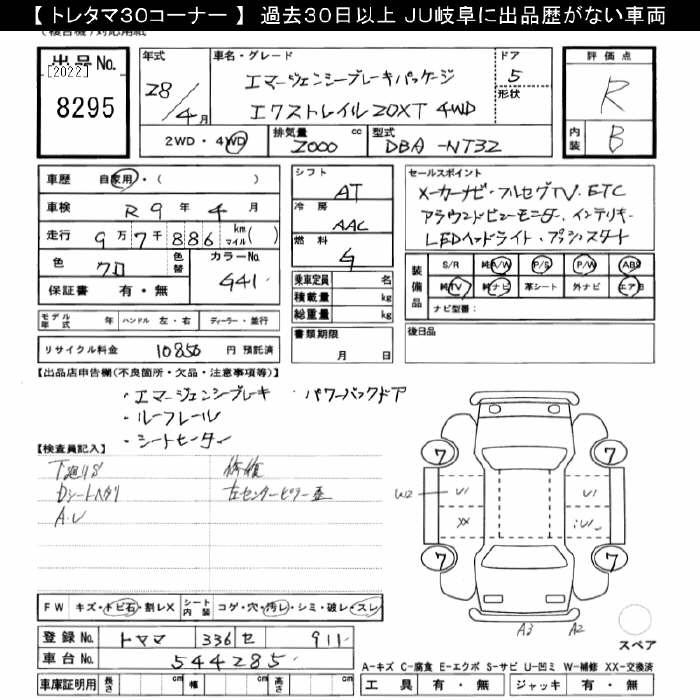 【 トレタマ30コーナー 】 過去30日以上 JU岐阜に出品歴がない車両
出品No.
[2022]
8295
年式
28/4月
車名・グレード
エマージェンシーブレーキパッケージ
エクストレイル20XT 4WD
ドア
5
形状
2WD・4WD
排気量
2000 cc
型式
DBA-NT32
評価点
R
内装
B
車歴 自家用・( )
車検 R9年4月
走行 9万7千886 km マイル( )
色 クロ
色替
カラーNo.
G41
保証書 有・無
シフト
AT
冷房
AAC
燃料
G
乗車定員 名
積載量 kg
総重量 kg
セールスポイント
メーカーナビ・フルセグTV・ETC
アラウンドビューモニター・インテリキー
LEDヘッドライト・プッシュスタート
装備品
S/R 純A/W P/S P/W ABS
純TV 純ナビ 革シート 外ナビ エアB
ナビ型番:
モデル年式 年 ハンドル 左・右 ディーラー・並行
リサイクル料金 10850 円 預託済
書類期限
月 日
後日品
【出品店申告欄(不良箇所・欠品・注意事項等)】
・エマージェンシーブレーキ ・パワーバックドア
・ルーフレール
・シートヒーター
【検査員記入】
下廻りS 修復
Dシートヘタリ 左センターピラー歪
A.U
7 7
W2 U1 U1
XX U1
7 7
A3 A2
スペア
FW キズ・トビ石・割レX
シート内装 コゲ・穴・汚レ・シミ・破レ・スレ
登録No. トママ 336 セ 911
車台No. 544285
車庫証明用 長さ cm 幅 cm 高さ cm
A-キズ C-腐食 E-エクボ S-サビ U-凹ミ W-補修 XX-交換済
工具 有・無 ジャッキ 有・無